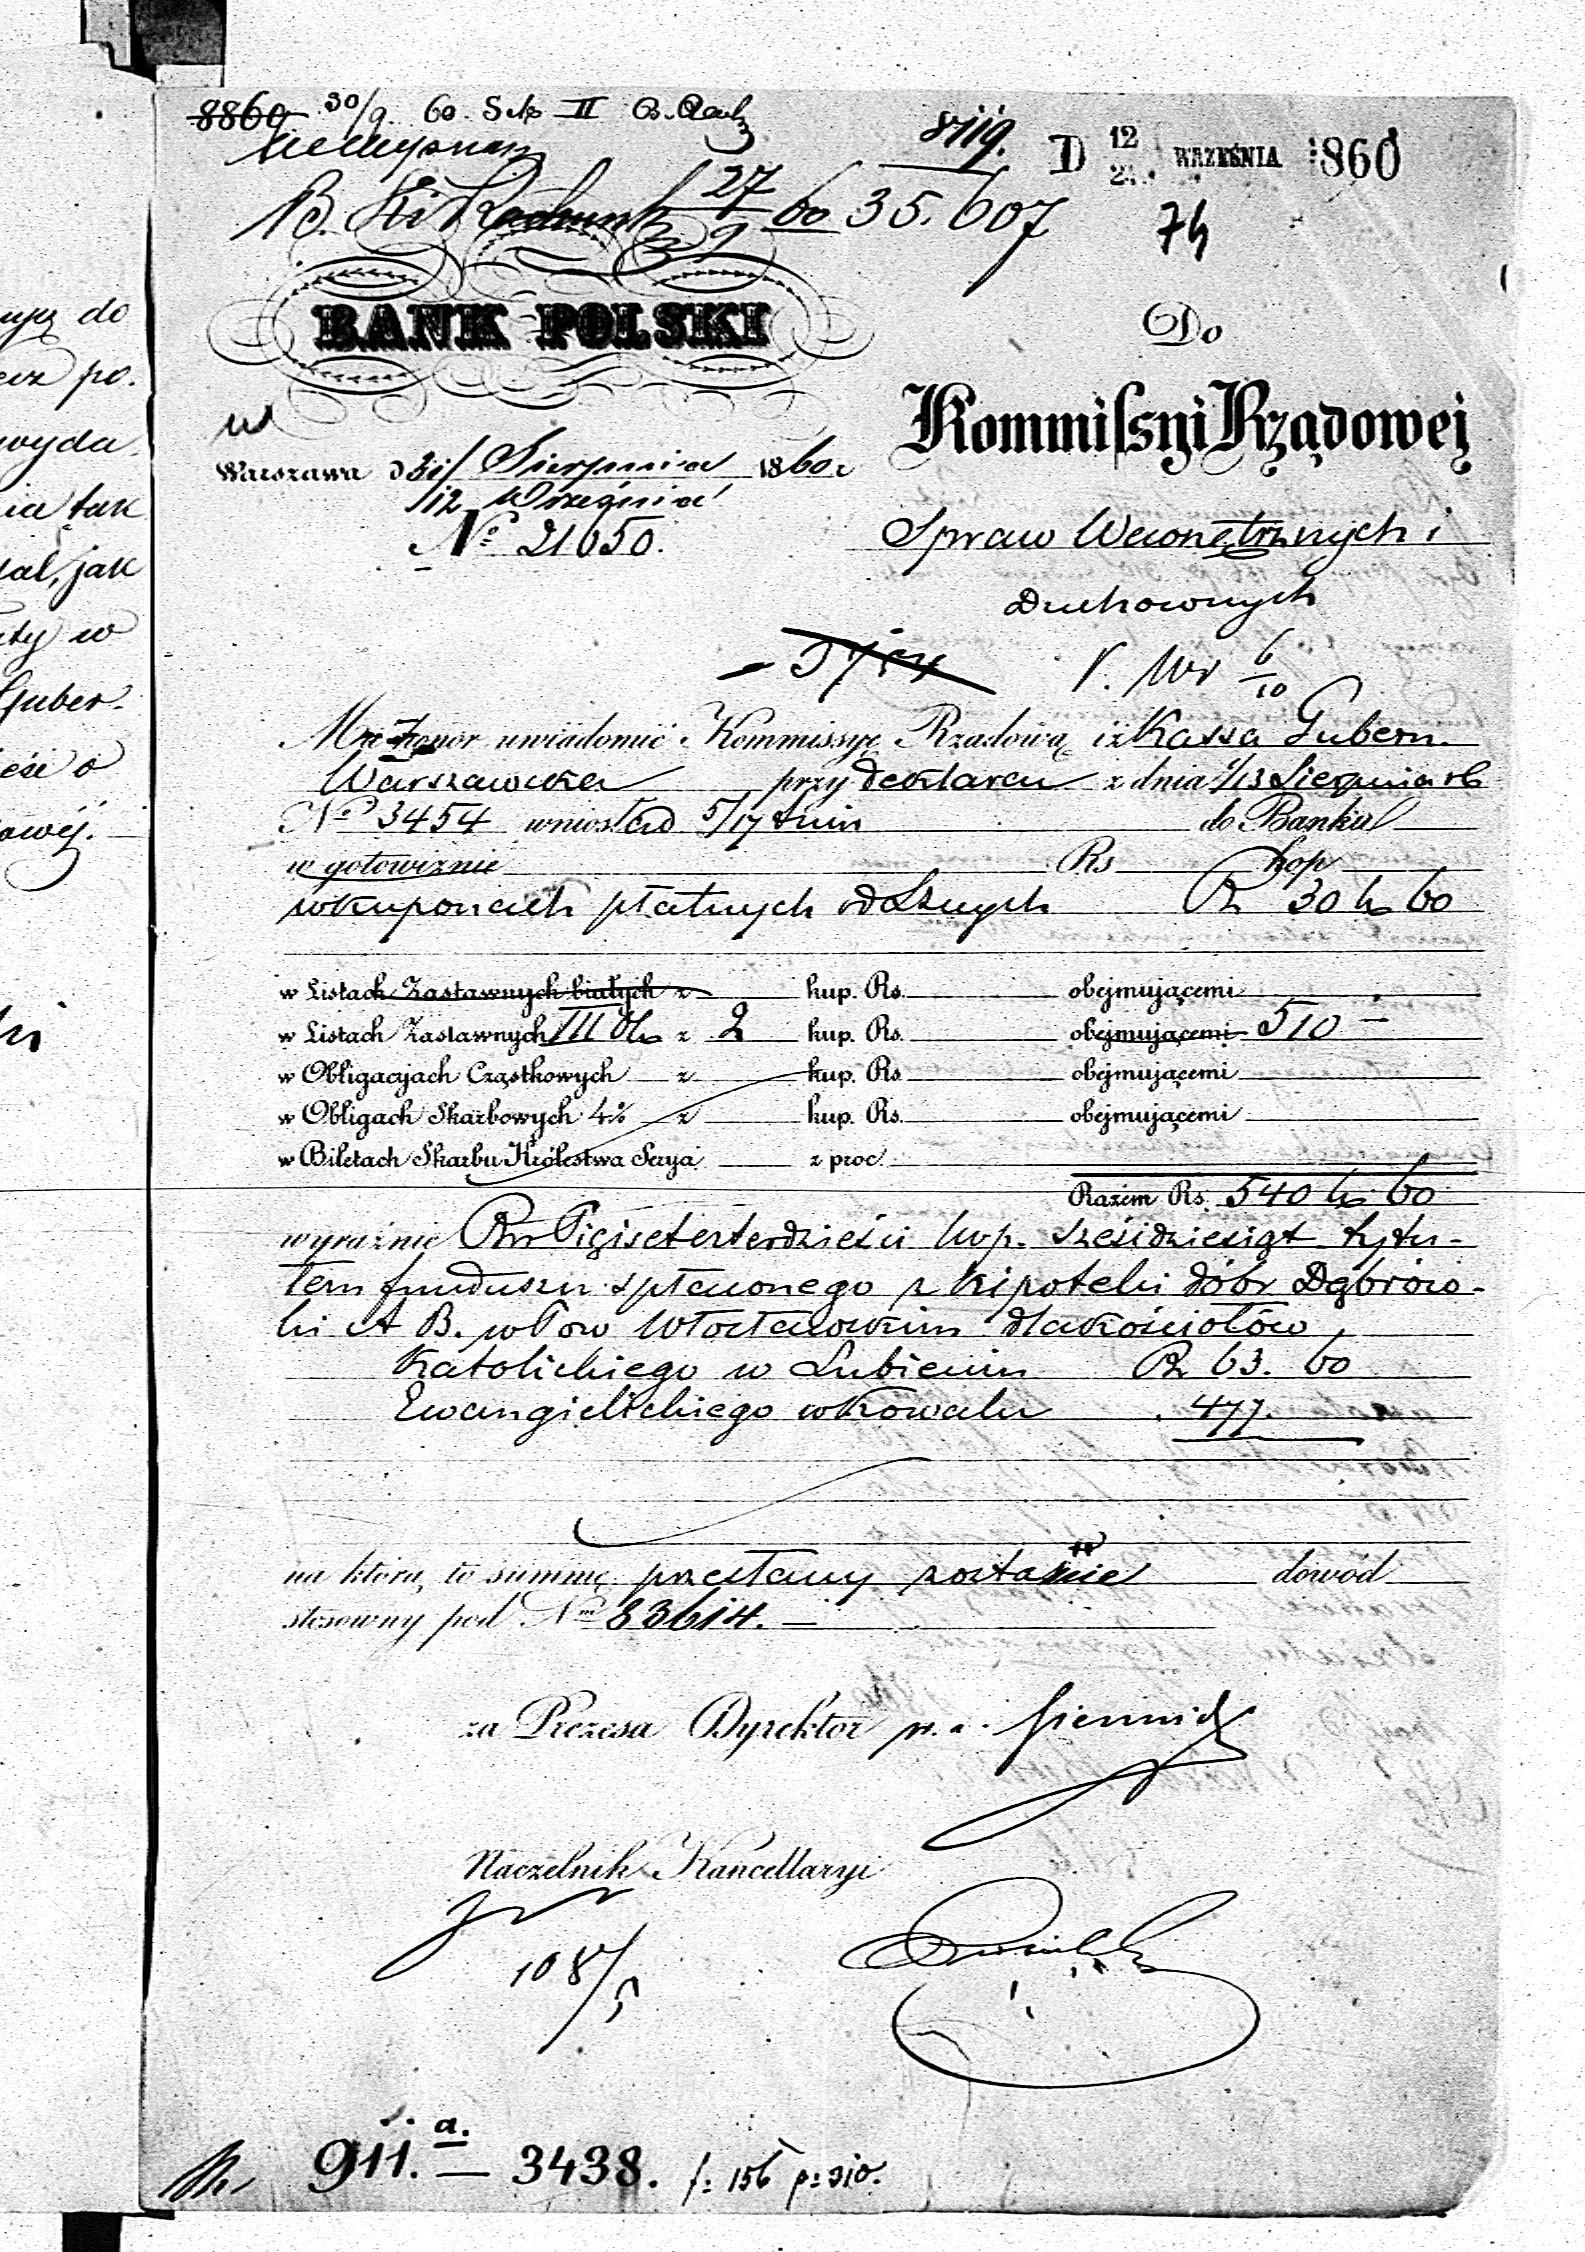 8860 30/9 60. Sek II
8119.
D 12/24 WRZEŚNIA 1860
B. 27/9 60 35.607
74
BANK POLSKI
Do
Kommissyi Rządowej
Warszawa d 31/ Sierpnia 1860 r
12 Września
No 21650.
Spraw Wewnętrznych i
Duchownych
6/10
Ma honor uwiadomić Kommissyę Rządową iż Kassa Gubern.
Warszawska przy deklaracyi z dnia 1/13 Sierpnia rb
No 3454 wniosła d 5/17 t.m. do Banku
w gotowiznie Rs kop
w kuponach płatnych odciętych Rs 30 k 60
w Listach Zastawnych białych z kup. Rs. obejmującemi
w Listach Zastawnych III Ok z 2 kup. Rs. obejmującemi 510 -
w Obligacjach Cząstkowych z kup. Rs obejmującemi
w Obligach Skarbowych 4% z kup. Rs. obejmującemi
w Biletach Skarbu Królestwa Serya z proc.
Razem Rs. 540 k 60
wyraźnie Rs Pięćsetczterdzieści kop. sześćdziesiąt tytu-
łem funduszu spłaconego z hipoteki dóbr Dąbrów-
ki A B. w Pow Włocławskim dla kościołów
Katolickiego w Lubieniu Rs 63. 60
Ewangielickiego w Kowalu . 477.
na którą to summę przesłany zostanie dowód
stosowny pod Nm 83614. -
za Prezesa Dyrektor
Naczelnik Kancellaryi
108/5
911.a. — 3438. f: 156 p: 310.
ując do
wyda
nia tak
jak
ty w
Guber-
o
owéj.
ki